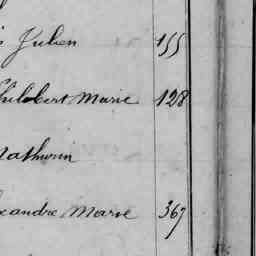 Julien 155
Philobert Marie 128
Mathurin
exandre Marie 367